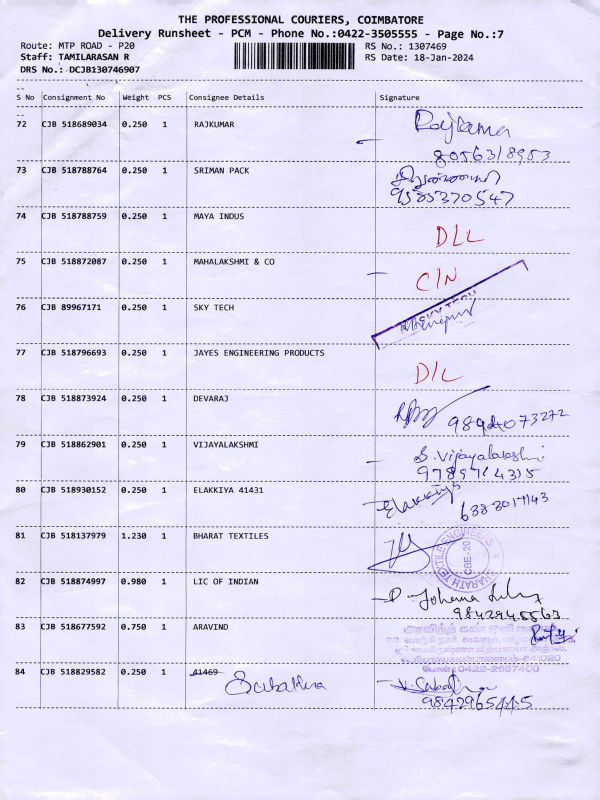 THE PROFESSIONAL COURIERS, COIMBATORE
Delivery Runsheet - PCM - Phone No.:0422-3505555 - Page No.:7
Route: MTP ROAD - P20
RS No.: 1307469
Staff: TAMILARASAN R
RS Date: 18-Jan-2024
DRS No.: DCJB130746907
--
S No Consignment No Weight PCS Consignee Details Signature
--
72 CJB 518689034 0.250 1 RAJKUMAR Rajkumar
8056318953
73 CJB 518788764 0.250 1 SRIMAN PACK
9585370547
74 CJB 518788759 0.250 1 MAYA INDUS DLL
75 CJB 518872087 0.250 1 MAHALAKSHMI & CO C/N
76 CJB 89967171 0.250 1 SKY TECH SKY TECH
77 CJB 518796693 0.250 1 JAYES ENGINEERING PRODUCTS D/L
78 CJB 518873924 0.250 1 DEVARAJ 9894073272
79 CJB 518862901 0.250 1 VIJAYALAKSHMI S. Vijayalakshmi
9789714315
80 CJB 518930152 0.250 1 ELAKKIYA 41431 Elakkiya
6383017143
81 CJB 518137979 1.230 1 BHARAT TEXTILES BHARATH TEXTILE ENGINEERS CBE-20
82 CJB 518874997 0.980 1 LIC OF INDIAN
9842945563
83 CJB 518677592 0.750 1 ARAVIND
0422-2697400
84 CJB 518829582 0.250 1 41469 Sabathra V. Sabathra
9842965445